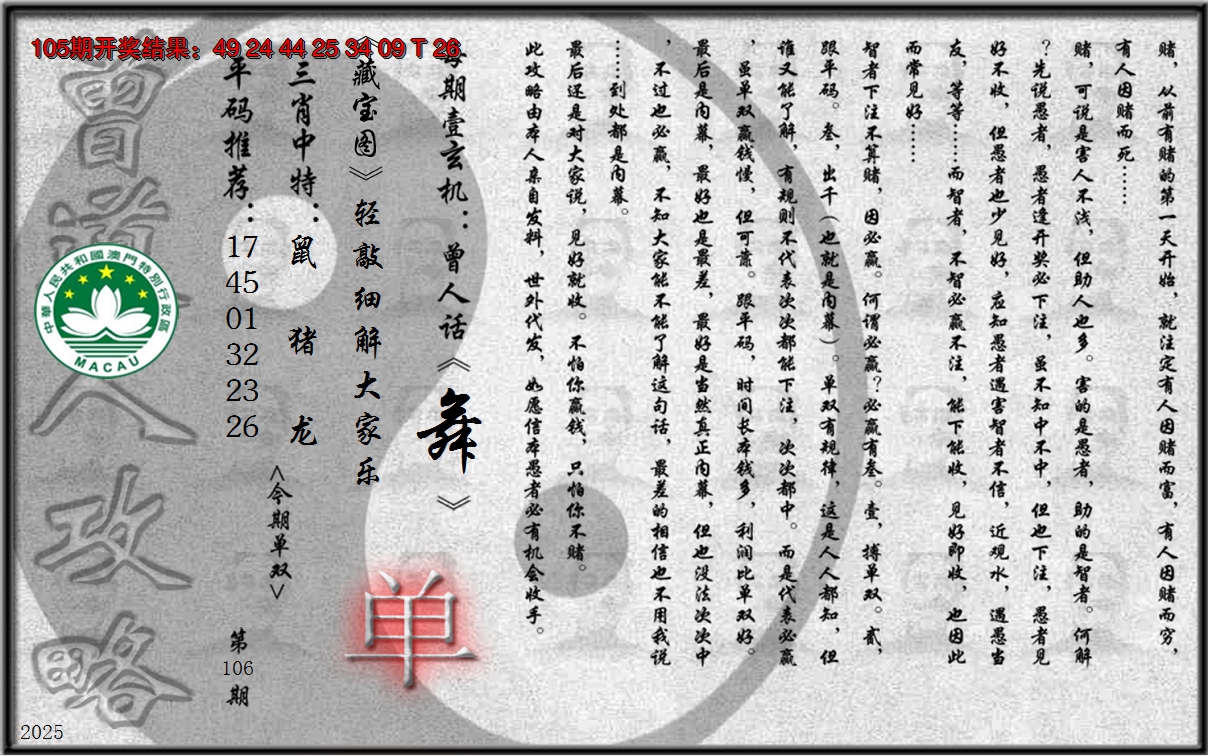 105期开奖结果：49 24 44 25 34 09 T 26
赌，从前有赌的第一天开始，就注定有人因赌而富，有人因赌而穷，
有人因赌而死……
赌，可说是害人不浅，但助人也多。害的是愚者，助的是智者。何解
？先说愚者，愚者逢开奖必下注，虽不知中不中，但也下注，愚者见
好不收，但愚者也少见好，应知愚者遇害智者不信，近观水，遇愚当
友，等等……而智者，不智必赢不注，能下能收，见好即收，也因此
而常见好……
智者下注不算赌，因必赢。何谓必赢？必赢有叁。壹，搏单双。贰，
跟平码。叁，出千（也就是内幕）。单双有规律，这是人人都知，但
谁又能了解，有规则不代表次次都能下注，次次都中。而是代表必赢
，虽单双赢钱慢，但可靠。跟平码，时间长本钱多，利润比单双好。
最后是内幕，最好也是最差，最好是当然真正内幕，但也没法次次中
，不过也必赢，不知大家能不能了解这句话，最差的相信也不用我说
……到处都是内幕。
最后还是对大家说，见好就收。不怕你赢钱，只怕你不赌。
此攻略由本人亲自发料，世外代发，如愿信本愚者必有机会收手。
每期壹玄机：曾人话《舞》
《藏宝图》轻敲细解大家乐
单
三肖中特：鼠 猪 龙
<今期单双>
平码推荐：17 45 01 32 23 26
第106期
曾道人攻略
中華人民共和國澳門特別行政區
MACAU
2025